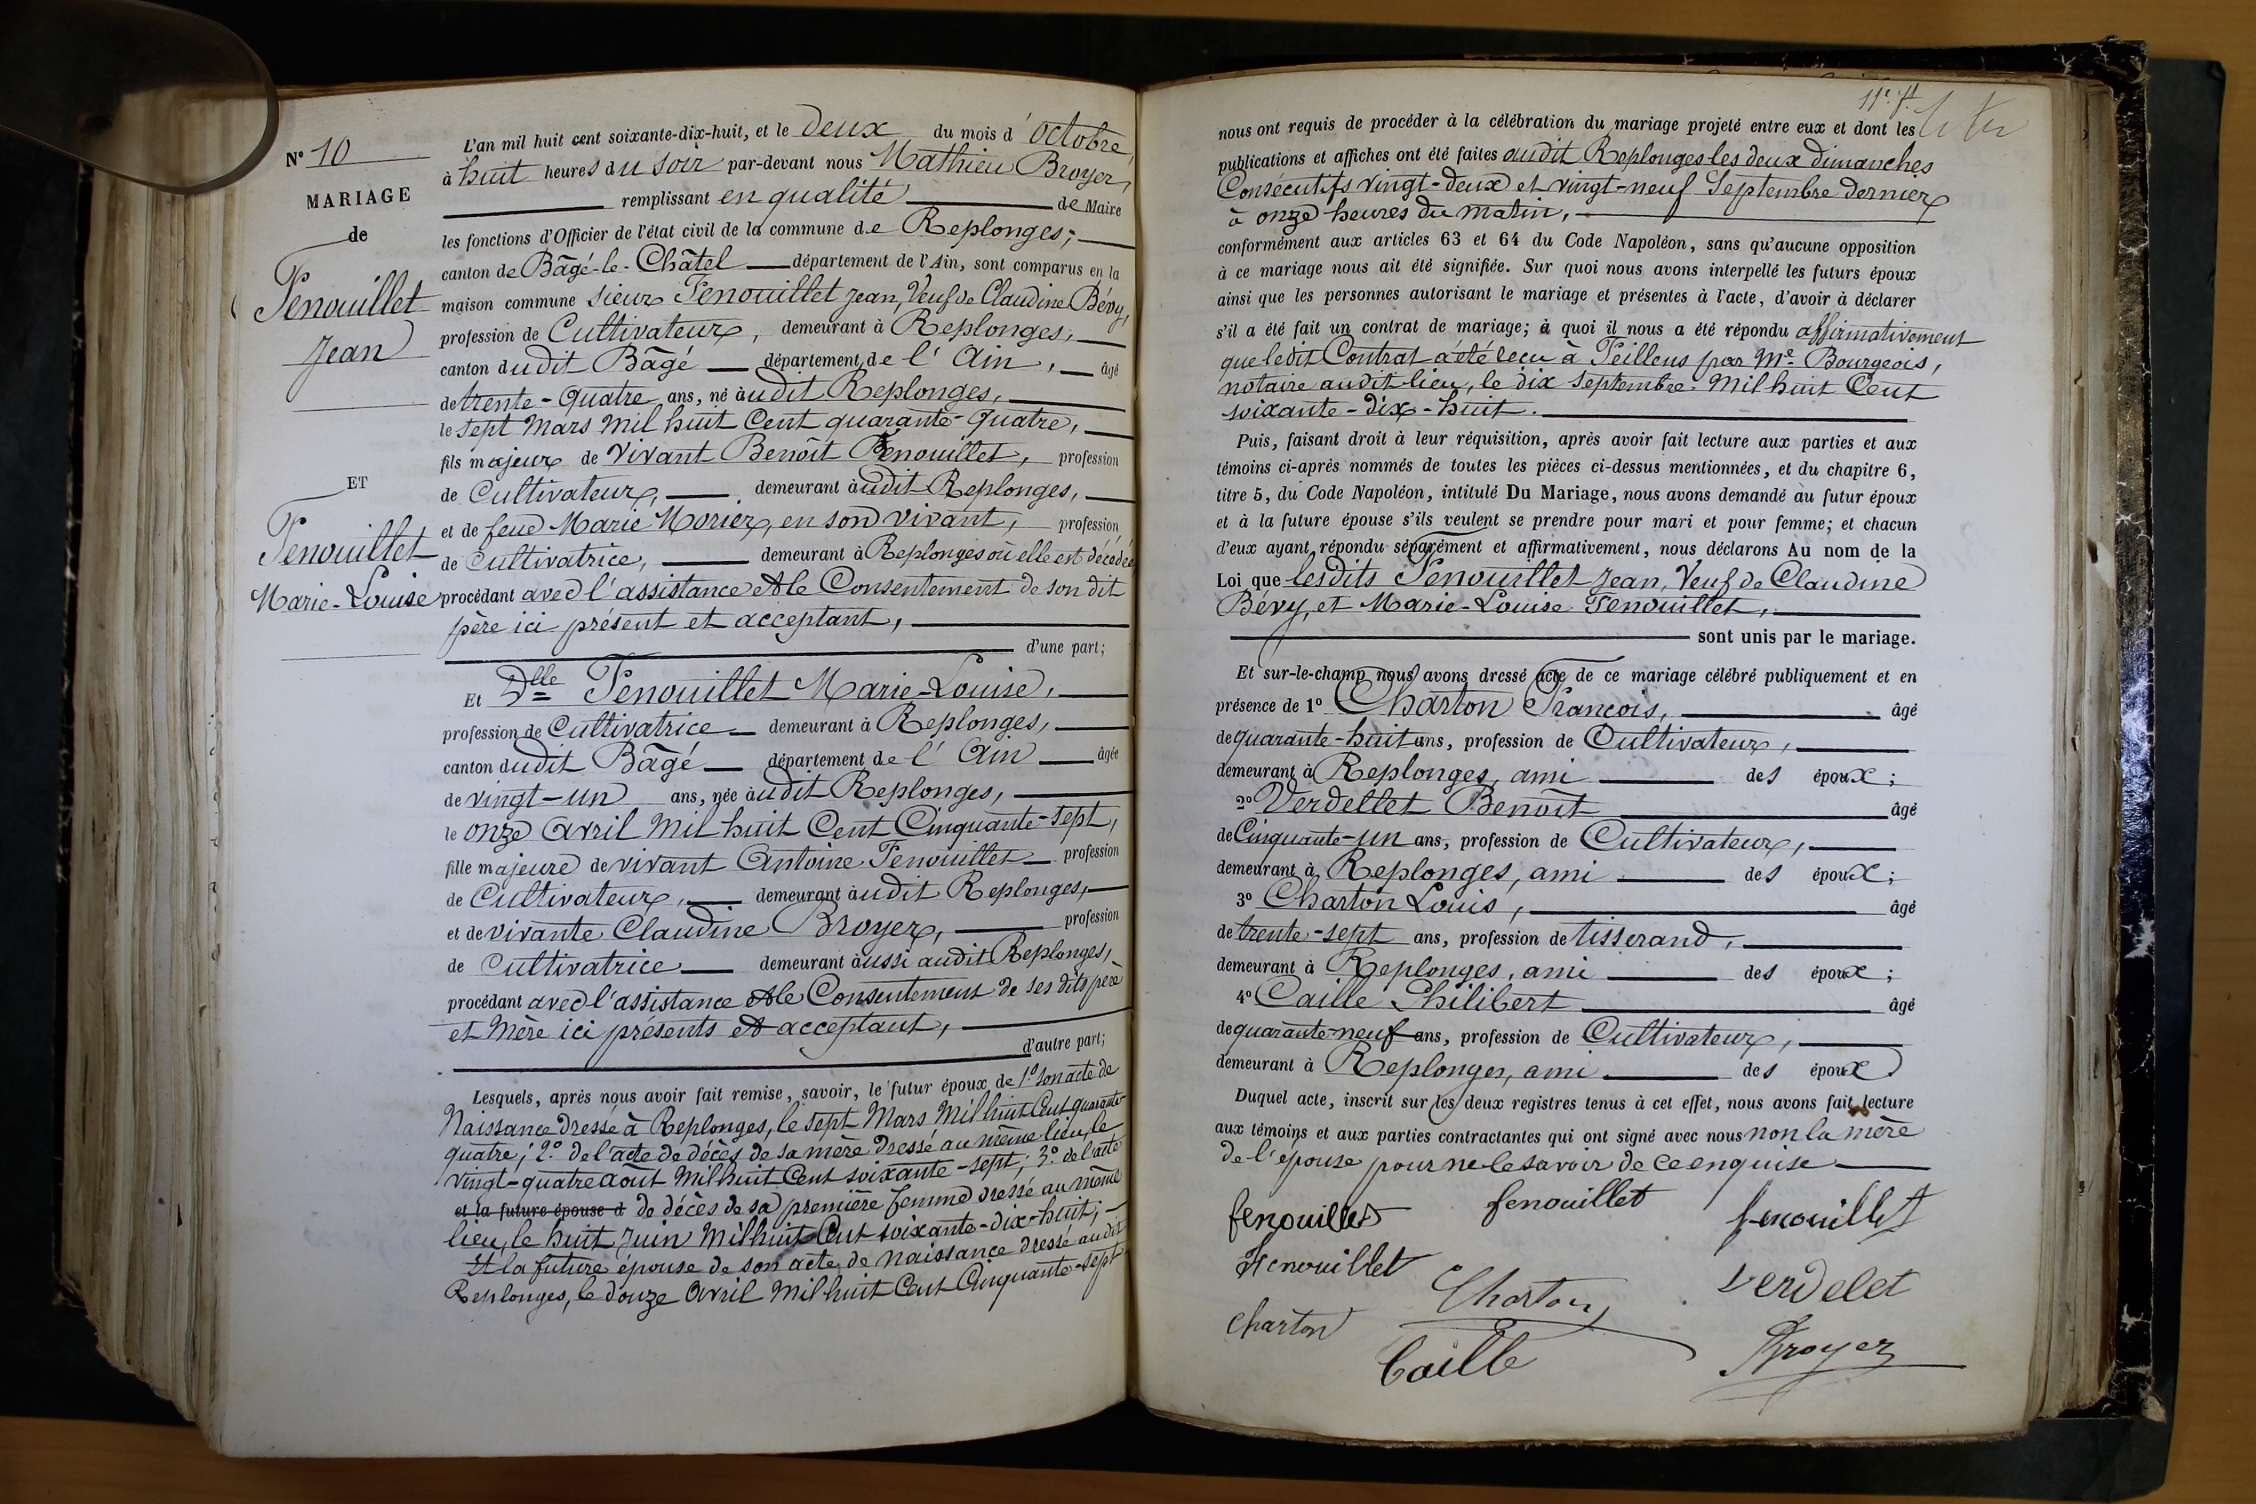 N° 10
MARIAGE
de
Fenouillet
Jean
ET
Fenouillet
Marie-Louise
L'an mil huit cent soixante-dix-huit, et le deux du mois d'octobre,
à huit heures du soir par-devant nous Mathieu Broyer,
remplissant en qualité de Maire
les fonctions d'Officier de l'état civil de la commune de Replonges,
canton de Bâgé-le-Châtel département de l'Ain, sont comparus en la
maison commune sieur Fenouillet Jean, Veuf de Claudine Bévy,
profession de Cultivateur, demeurant à Replonges,
canton dudit Bâgé département de l'Ain, âgé
de trente-quatre ans, né audit Replonges,
le sept Mars mil huit Cent quarante-quatre,
fils majeur de vivant Benoît Fenouillet, profession
de Cultivateur, demeurant audit Replonges,
et de feue Marie Morier, en son vivant, profession
de Cultivatrice, demeurant à Replonges où elle est décédée
procédant avec l'assistance et le Consentement de son dit
père ici présent et acceptant,
d'une part;
Et Dlle Fenouillet Marie-Louise,
profession de Cultivatrice demeurant à Replonges,
canton dudit Bâgé département de l'Ain âgée
de vingt-un ans, née audit Replonges,
le onze avril mil huit Cent Cinquante-sept,
fille majeure de vivant Antoine Fenouillet profession
de Cultivateur, demeurant audit Replonges,
et de vivante Claudine Broyer, profession
de Cultivatrice demeurant aussi audit Replonges,
procédant avec l'assistance et le Consentement de ses dits père
et mère ici présents et acceptant,
d'autre part;
Lesquels, après nous avoir fait remise, savoir, le futur époux de 1° son acte de
Naissance dressé à Replonges, le sept Mars mil huit Cent quarante-
quatre; 2° de l'acte de décès de sa mère dressé au même lieu, le
vingt-quatre août mil huit Cent soixante-sept; 3° de l'acte
et la future épouse d de décès de sa première femme dressé au même
lieu, le huit juin mil huit Cent soixante-dix-huit;
Et la future épouse de son acte de naissance dressé audit
Replonges, le douze avril mil huit Cent Cinquante-sept
nous ont requis de procéder à la célébration du mariage projeté entre eux et dont les
publications et affiches ont été faites audit Replonges les deux dimanches
Consécutifs vingt-deux et vingt-neuf Septembre dernier
à onze heures du matin,
conformément aux articles 63 et 64 du Code Napoléon, sans qu'aucune opposition
à ce mariage nous ait été signifiée. Sur quoi nous avons interpellé les futurs époux
ainsi que les personnes autorisant le mariage et présentes à l'acte, d'avoir à déclarer
s'il a été fait un contrat de mariage; à quoi il nous a été répondu affirmativement
que ledit Contrat a été reçu à Feillens par Me Bourgeois,
notaire audit lieu, le dix septembre mil huit Cent
soixante-dix-huit.
Puis, faisant droit à leur réquisition, après avoir fait lecture aux parties et aux
témoins ci-après nommés de toutes les pièces ci-dessus mentionnées, et du chapitre 6,
titre 5, du Code Napoléon, intitulé Du Mariage, nous avons demandé au futur époux
et à la future épouse s'ils veulent se prendre pour mari et pour femme; et chacun
d'eux ayant répondu séparément et affirmativement, nous déclarons Au nom de la
Loi que lesdits Fenouillet Jean, Veuf de Claudine
Bévy, et Marie-Louise Fenouillet,
sont unis par le mariage.
Et sur-le-champ nous avons dressé acte de ce mariage célébré publiquement et en
présence de 1° Charton François, âgé
de quarante-huit ans, profession de Cultivateur,
demeurant à Replonges, ami des époux;
2° Verdellet Benoît âgé
de Cinquante-un ans, profession de Cultivateur,
demeurant à Replonges, ami des époux;
3° Charton Louis, âgé
de trente-sept ans, profession de tisserand,
demeurant à Replonges, ami des époux;
4° Caille Philibert âgé
de quarante-neuf ans, profession de Cultivateur,
demeurant à Replonges, ami des époux
Duquel acte, inscrit sur les deux registres tenus à cet effet, nous avons fait lecture
aux témoins et aux parties contractantes qui ont signé avec nous non la mère
de l'épouse pour ne le savoir de ce enquise
fenouillet fenouillet fenouillet
Fenouillet
Charton verdelet
charton
Caille Broyer